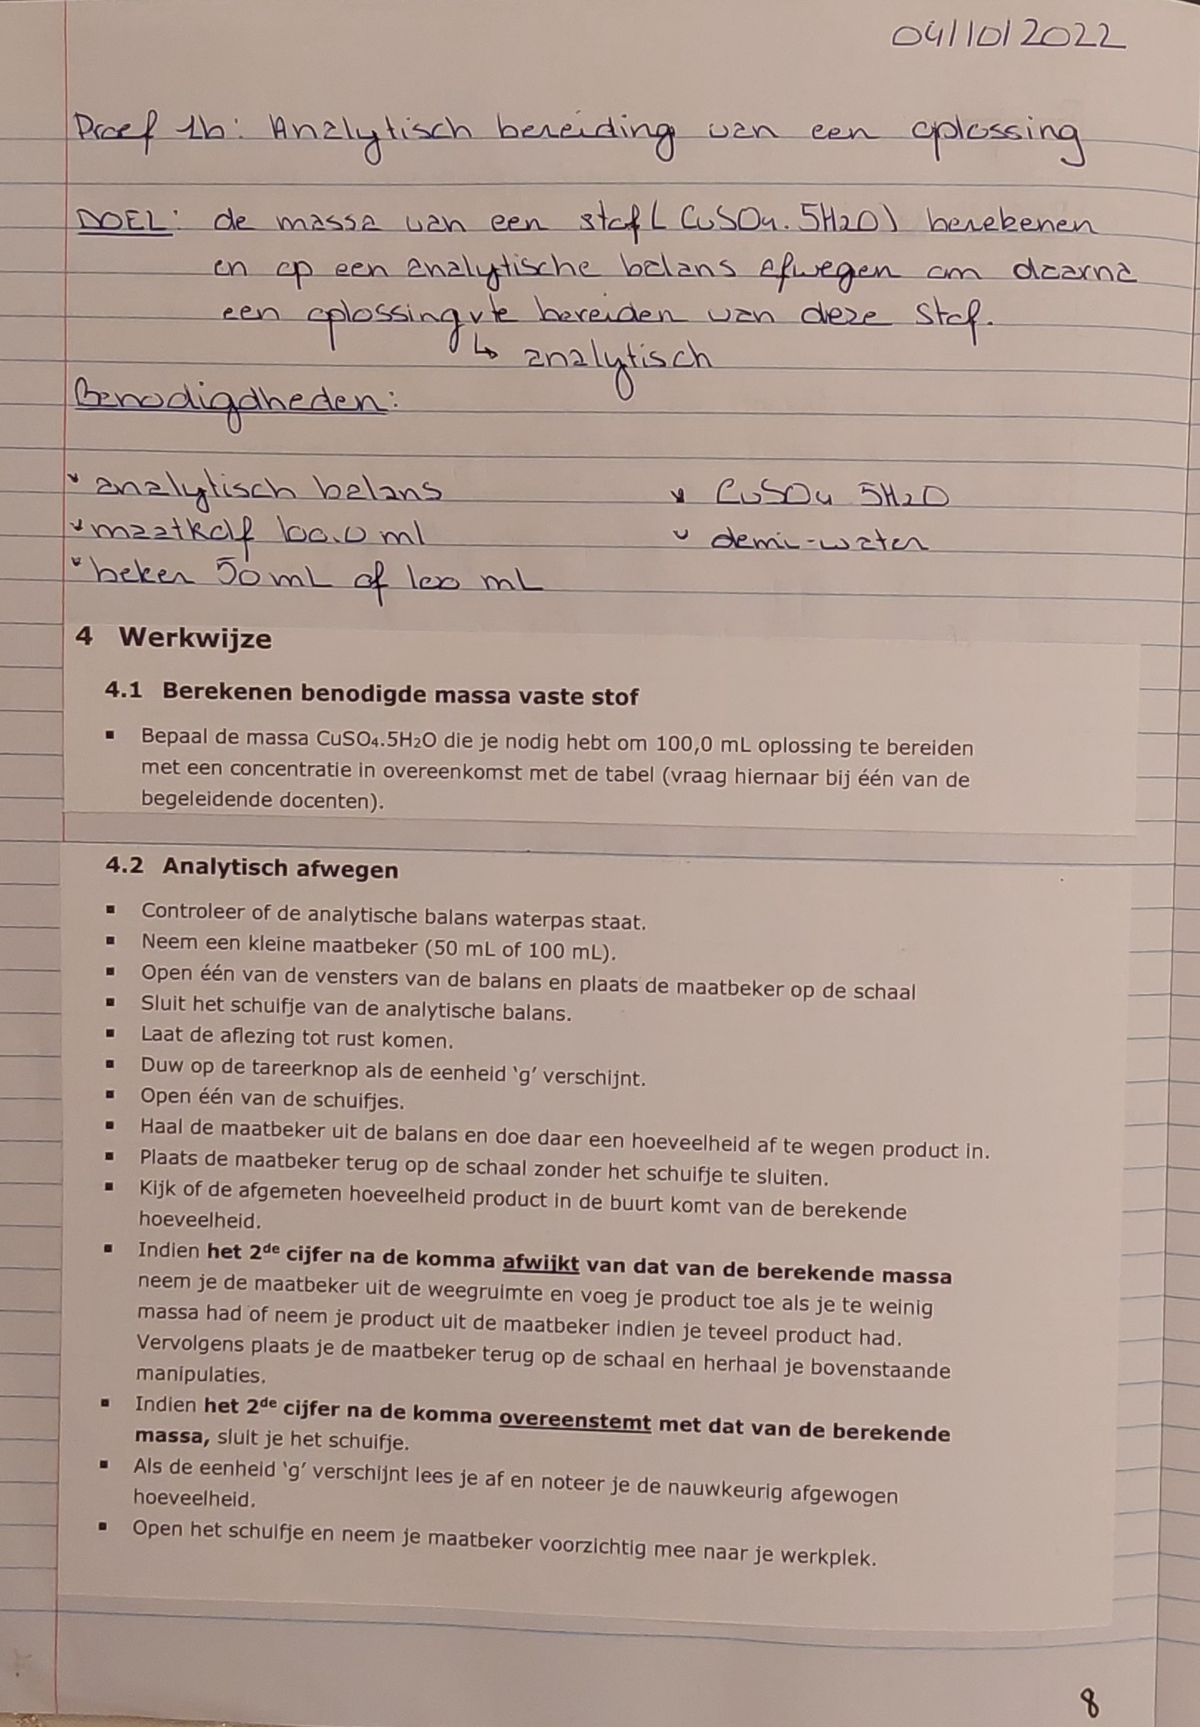 04/10/2022
Proef 1b: Analytisch bereiding van een oplossing
DOEL: de massa van een stof (CuSO4.5H2O) berekenen
en op een analytische balans afwegen om daarna
een oplossing te bereiden van deze stof.
↳ analytisch
Benodigdheden:
analytisch balans
CuSO4 5H2O
maatkolf 100.0 ml
demi-water
beker 50 mL of 100 mL
4 Werkwijze
4.1 Berekenen benodigde massa vaste stof
▪ Bepaal de massa CuSO4.5H2O die je nodig hebt om 100,0 mL oplossing te bereiden
met een concentratie in overeenkomst met de tabel (vraag hiernaar bij één van de
begeleidende docenten).
4.2 Analytisch afwegen
▪ Controleer of de analytische balans waterpas staat.
▪ Neem een kleine maatbeker (50 mL of 100 mL).
▪ Open één van de vensters van de balans en plaats de maatbeker op de schaal
▪ Sluit het schuifje van de analytische balans.
▪ Laat de aflezing tot rust komen.
▪ Duw op de tareerknop als de eenheid ‘g’ verschijnt.
▪ Open één van de schuifjes.
▪ Haal de maatbeker uit de balans en doe daar een hoeveelheid af te wegen product in.
▪ Plaats de maatbeker terug op de schaal zonder het schuifje te sluiten.
▪ Kijk of de afgemeten hoeveelheid product in de buurt komt van de berekende
hoeveelheid.
▪ Indien het 2de cijfer na de komma afwijkt van dat van de berekende massa
neem je de maatbeker uit de weegruimte en voeg je product toe als je te weinig
massa had of neem je product uit de maatbeker indien je teveel product had.
Vervolgens plaats je de maatbeker terug op de schaal en herhaal je bovenstaande
manipulaties.
▪ Indien het 2de cijfer na de komma overeenstemt met dat van de berekende
massa, sluit je het schuifje.
▪ Als de eenheid ‘g’ verschijnt lees je af en noteer je de nauwkeurig afgewogen
hoeveelheid.
▪ Open het schuifje en neem je maatbeker voorzichtig mee naar je werkplek.
8